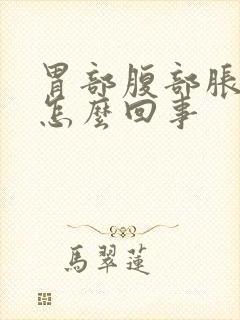 胃部腹部脹
怎麼回事
馬翠蓮